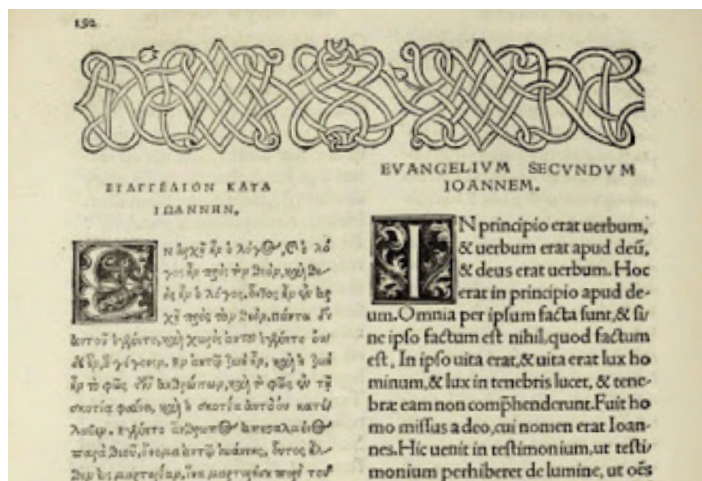 192
ΕΥΑΓΓΕΛΙΟΝ ΚΑΤΑ
ΙΩΑΝΝΗΝ.
ΕΝ ἀρχῇ ἦν ὁ λόγος, καὶ ὁ λό
γος ἦν πρὸς τὸν θεόν, καὶ θε
ὸς ἦν ὁ λόγος. οὗτος ἦν ἐν ἀρ
χῇ πρὸς τὸν θεόν. πάντα δι'
αὐτοῦ ἐγένετο, καὶ χωρὶς αὐτοῦ ἐγένετο οὐ
δὲ ἕν, ὃ γέγονεν. ἐν αὐτῷ ζωὴ ἦν, καὶ ἡ ζωὴ
ἦν τὸ φῶς τῶν ἀνθρώπων, καὶ τὸ φῶς ἐν τῇ
σκοτίᾳ φαίνει, καὶ ἡ σκοτία αὐτὸ οὐ κατέ
λαβεν. ἐγένετο ἄνθρωπος ἀπεσταλμένος
παρὰ θεοῦ, ὄνομα αὐτῷ ἰωάννης, οὗτος ἦλ
θεν εἰς μαρτυρίαν, ἵνα μαρτυρήσῃ περὶ τοῦ
EVANGELIVM SECVNDVM
IOANNEM.
IN principio erat uerbum,
& uerbum erat apud deū,
& deus erat uerbum. Hoc
erat in principio apud de-
um. Omnia per ipsum facta sunt, & si/
ne ipso factum est nihil, quod factum
est. In ipso uita erat, & uita erat lux ho
minum, & lux in tenebris lucet, & tene-
bræ eam non comp̄henderunt. Fuit ho
mo missus a deo, cui nomen erat Ioan-
nes. Hic uenit in testimonium, ut testi/
monium perhiberet de lumine, ut oēs